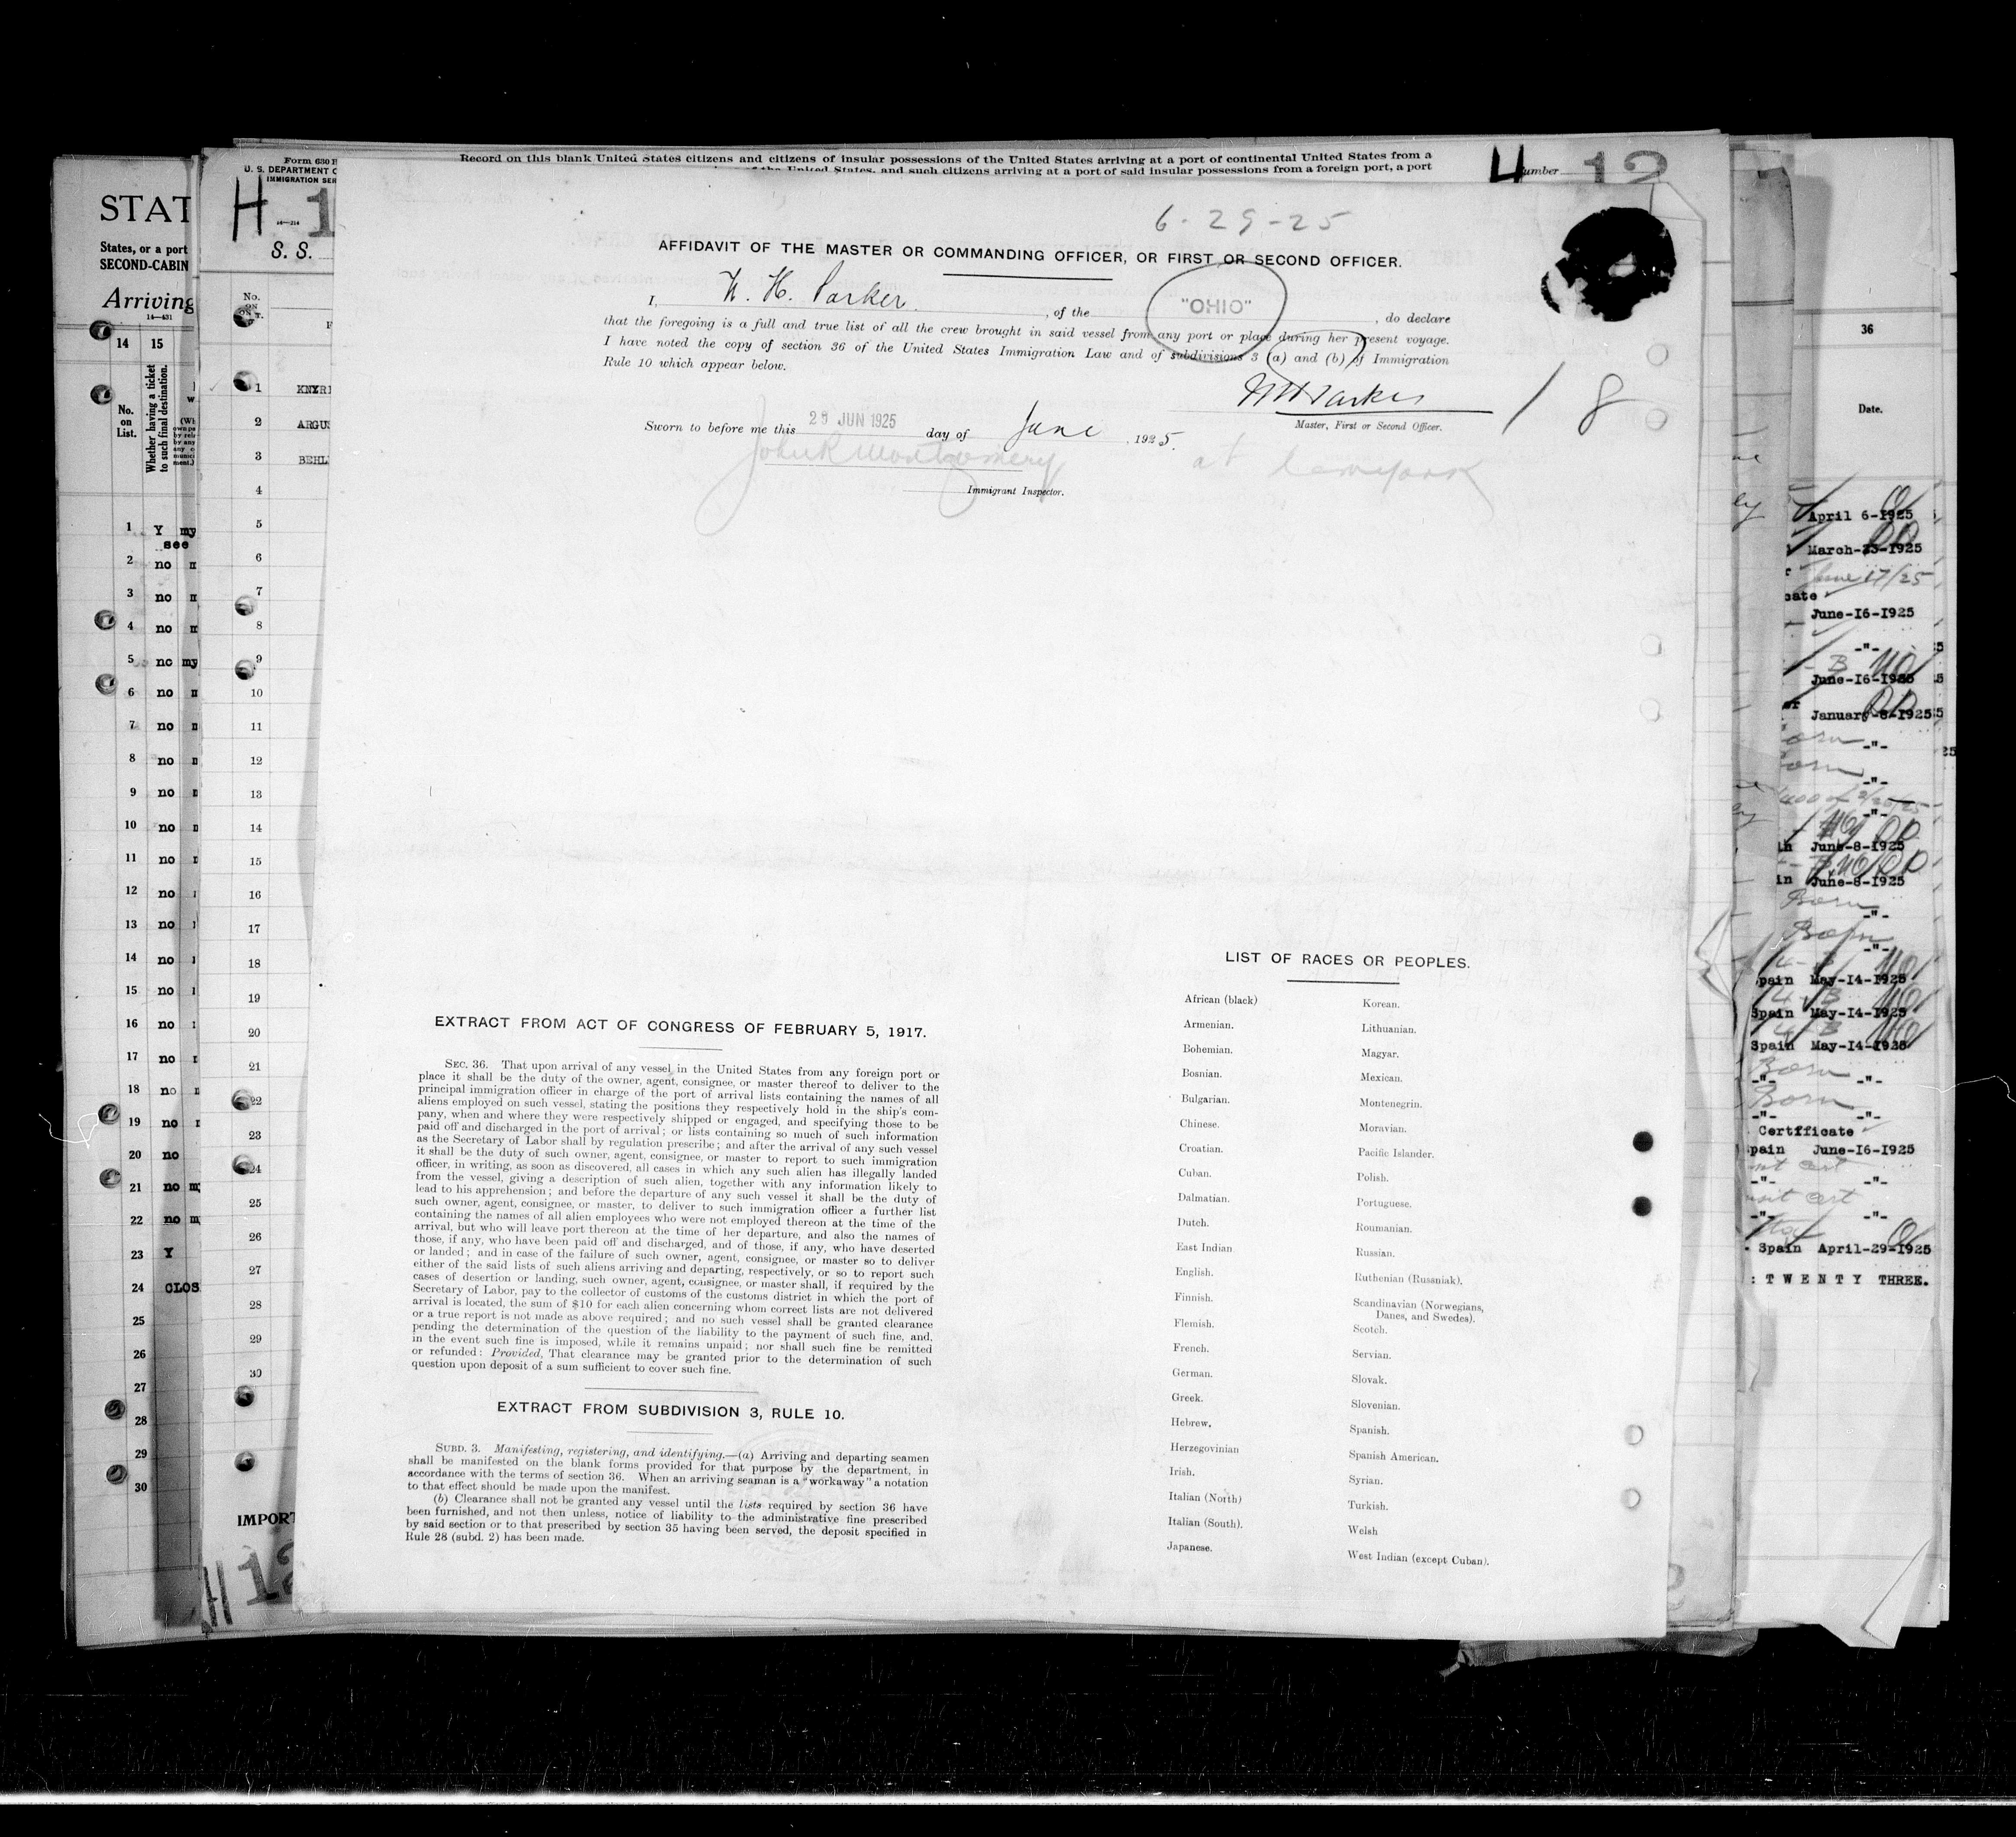 STAT
States, or a port
SECOND-CABIN
Arriving
14—431
14 15
No.
on
List.
Whether having a ticket
to such final destination.
1 Y my
see
2 no
3 no
4 no
5 no my
6 no
7 no
8 no
9 no
10 no
11 no
12 no
13 no
14 no
15 no
16 no
17 no
18 no
19 no
20 no
21 no
22 no
23 Y
24 CLOS
25
26
27
28
29
30
Form 630
U. S. DEPARTMENT
IMMIGRATION SER
H 1
14—214
S. S.
No.
ON
1 KNYRI
2 ARGUS
3 BEHL
4
5
6
7
8
9
10
11
12
13
14
15
16
17
18
19
20
21
22
23
24
25
26
27
28
29
30
IMPORT
H 12
Record on this blank United States citizens and citizens of insular possessions of the United States arriving at a port of continental United States from a
of the United States, and such citizens arriving at a port of said insular possessions from a foreign port, a port
H umber 12
6-29-25
AFFIDAVIT OF THE MASTER OR COMMANDING OFFICER, OR FIRST OR SECOND OFFICER.
I, H. Parker, of the "OHIO", do declare
that the foregoing is a full and true list of all the crew brought in said vessel from any port or place during her present voyage.
I have noted the copy of section 36 of the United States Immigration Law and of subdivisions 3 (a) and (b) of Immigration
Rule 10 which appear below.
Parker 1 8
Master, First or Second Officer.
Sworn to before me this 29 JUN 1925 day of June, 1925.
John R Montgomery at
Immigrant Inspector.
EXTRACT FROM ACT OF CONGRESS OF FEBRUARY 5, 1917.
SEC. 36. That upon arrival of any vessel in the United States from any foreign port or
place it shall be the duty of the owner, agent, consignee, or master thereof to deliver to the
principal immigration officer in charge of the port of arrival lists containing the names of all
aliens employed on such vessel, stating the positions they respectively hold in the ship's com-
pany, when and where they were respectively shipped or engaged, and specifying those to be
paid off and discharged in the port of arrival; or lists containing so much of such information
as the Secretary of Labor shall by regulation prescribe; and after the arrival of any such vessel
it shall be the duty of such owner, agent, consignee, or master to report to such immigration
officer, in writing, as soon as discovered, all cases in which any such alien has illegally landed
from the vessel, giving a description of such alien, together with any information likely to
lead to his apprehension; and before the departure of any such vessel it shall be the duty of
such owner, agent, consignee, or master, to deliver to such immigration officer a further list
containing the names of all alien employees who were not employed thereon at the time of the
arrival, but who will leave port thereon at the time of her departure, and also the names of
those, if any, who have been paid off and discharged, and of those, if any, who have deserted
or landed; and in case of the failure of such owner, agent, consignee, or master so to deliver
either of the said lists of such aliens arriving and departing, respectively, or so to report such
cases of desertion or landing, such owner, agent, consignee, or master shall, if required by the
Secretary of Labor, pay to the collector of customs of the customs district in which the port of
arrival is located, the sum of $10 for each alien concerning whom correct lists are not delivered
or a true report is not made as above required; and no such vessel shall be granted clearance
pending the determination of the question of the liability to the payment of such fine, and,
in the event such fine is imposed, while it remains unpaid; nor shall such fine be remitted
or refunded: Provided, That clearance may be granted prior to the determination of such
question upon deposit of a sum sufficient to cover such fine.
EXTRACT FROM SUBDIVISION 3, RULE 10.
SUBD. 3. Manifesting, registering, and identifying.—(a) Arriving and departing seamen
shall be manifested on the blank forms provided for that purpose by the department, in
accordance with the terms of section 36. When an arriving seaman is a "workaway" a notation
to that effect should be made upon the manifest.
(b) Clearance shall not be granted any vessel until the lists required by section 36 have
been furnished, and not then unless, notice of liability to the administrative fine prescribed
by said section or to that prescribed by section 35 having been served, the deposit specified in
Rule 28 (subd. 2) has been made.
LIST OF RACES OR PEOPLES.
African (black)
Armenian.
Bohemian.
Bosnian.
Bulgarian.
Chinese.
Croatian.
Cuban.
Dalmatian.
Dutch.
East Indian
English.
Finnish.
Flemish.
French.
German.
Greek.
Hebrew,
Herzegovinian
Irish.
Italian (North)
Italian (South).
Japanese.
Korean.
Lithuanian.
Magyar.
Mexican.
Montenegrin.
Moravian.
Pacific Islander.
Polish.
Portuguese.
Roumanian.
Russian.
Ruthenian (Russniak).
Scandinavian (Norwegians,
Danes, and Swedes).
Scotch.
Servian.
Slovak.
Slovenian.
Spanish.
Spanish American.
Syrian.
Turkish.
Welsh
West Indian (except Cuban).
36
Date.
April 6-1925
March-23-1925
June 17/25
cate
June-16-1925
-"-
June-16-1925
January-8-1925
-"-
-"-
-"-
June-8-1925
in June-8-1925
Born
-"-
Born
-"-
pain May-14-1925
Spain May-14-1925
Spain May-14-1925
Born
-"- -"-
Born
-"- -"-
Certfficate
pain June-16-1925
-"- -"-
-"- -"-
Spain April-29-1925
: T W E N T Y THREE.